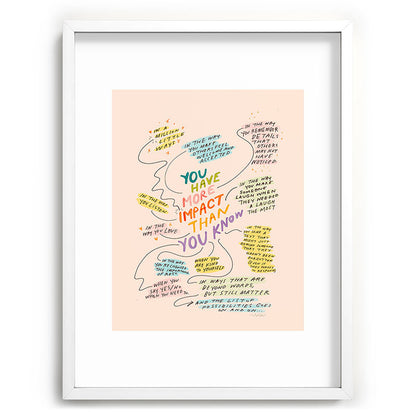 IN A
MILLION
LITTLE
WAYS
IN THE WAY
YOU MAKE
OTHERS FEEL
WELCOME AND
ACCEPTED
IN THE WAY
YOU REMEMBER
DETAILS
THAT
OTHERS
MAY NOT
HAVE
NOTICED
YOU
HAVE
MORE
IMPACT
THAN
YOU KNOW
IN THE WAY
YOU MAKE
SOMEONE
LAUGH WHEN
THEY NEEDED
LAUGH
THE MOST
IN THE
WAY
YOU LISTEN
IN THE
WAY YOU LOVE
IN THE WAY
THE IMPORTANCE
OF REST
WHEN YOU
ARE KIND
TO YOURSELF
WHEN YOU
SAY YES/NO
WHEN YOU NEED TO
IN WAYS THAT ARE
BEYOND WORDS,
BUT STILL MATTER
AND THE LIST OF
POSSIBILITIES GOES
ON AND ON...